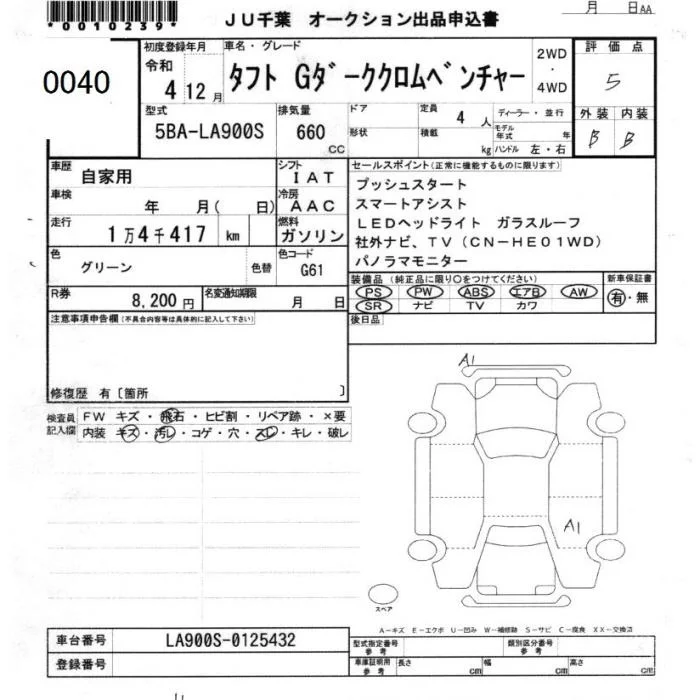 *0010239*
JU千葉 オークション出品申込書
月 日AA
0040
初度登録年月
令和
4 12月
車名・グレード
タフト Gダーククロムベンチャー
2WD
・
4WD
評価点
5
外装 内装
B B
型式
5BA-LA900S
排気量
660
CC
ドア
形状
定員
4 人
積載
kg
ディーラー・並行
モデル年式
年
ハンドル 左・右
車歴
自家用
シフト
IAT
車検
年 月( 日)
冷房
AAC
走行
1万4千417 km
燃料
ガソリン
色
グリーン
色替
色コード
G61
R券
8,200円
名変通知期限
月 日
セールスポイント(正常に機能するものに限ります)
プッシュスタート
スマートアシスト
LEDヘッドライト ガラスルーフ
社外ナビ、TV(CN-HE01WD)
パノラマモニター
装備品 (純正品に限り○をつけてください)
PS PW ABS エアB AW
SR ナビ TV カワ
新車保証書
有・無
後日品
注意事項申告欄(不具合内容等は具体的に記入して下さい)
修復歴 有〔箇所 〕
検査員
記入欄
FW キズ・飛石・ヒビ割・リペア跡・×要
内装 キズ・汚レ・コゲ・穴・スレ・キレ・破レ
A1
A1
スペア
A-キズ E-エクボ U-凹み W-補修跡 S-サビ C-腐食 XX-交換済
車台番号
LA900S-0125432
登録番号
型式指定番号
参考
類別区分番号
参考
車庫証明用
参考
長さ cm
幅 cm
高さ cm